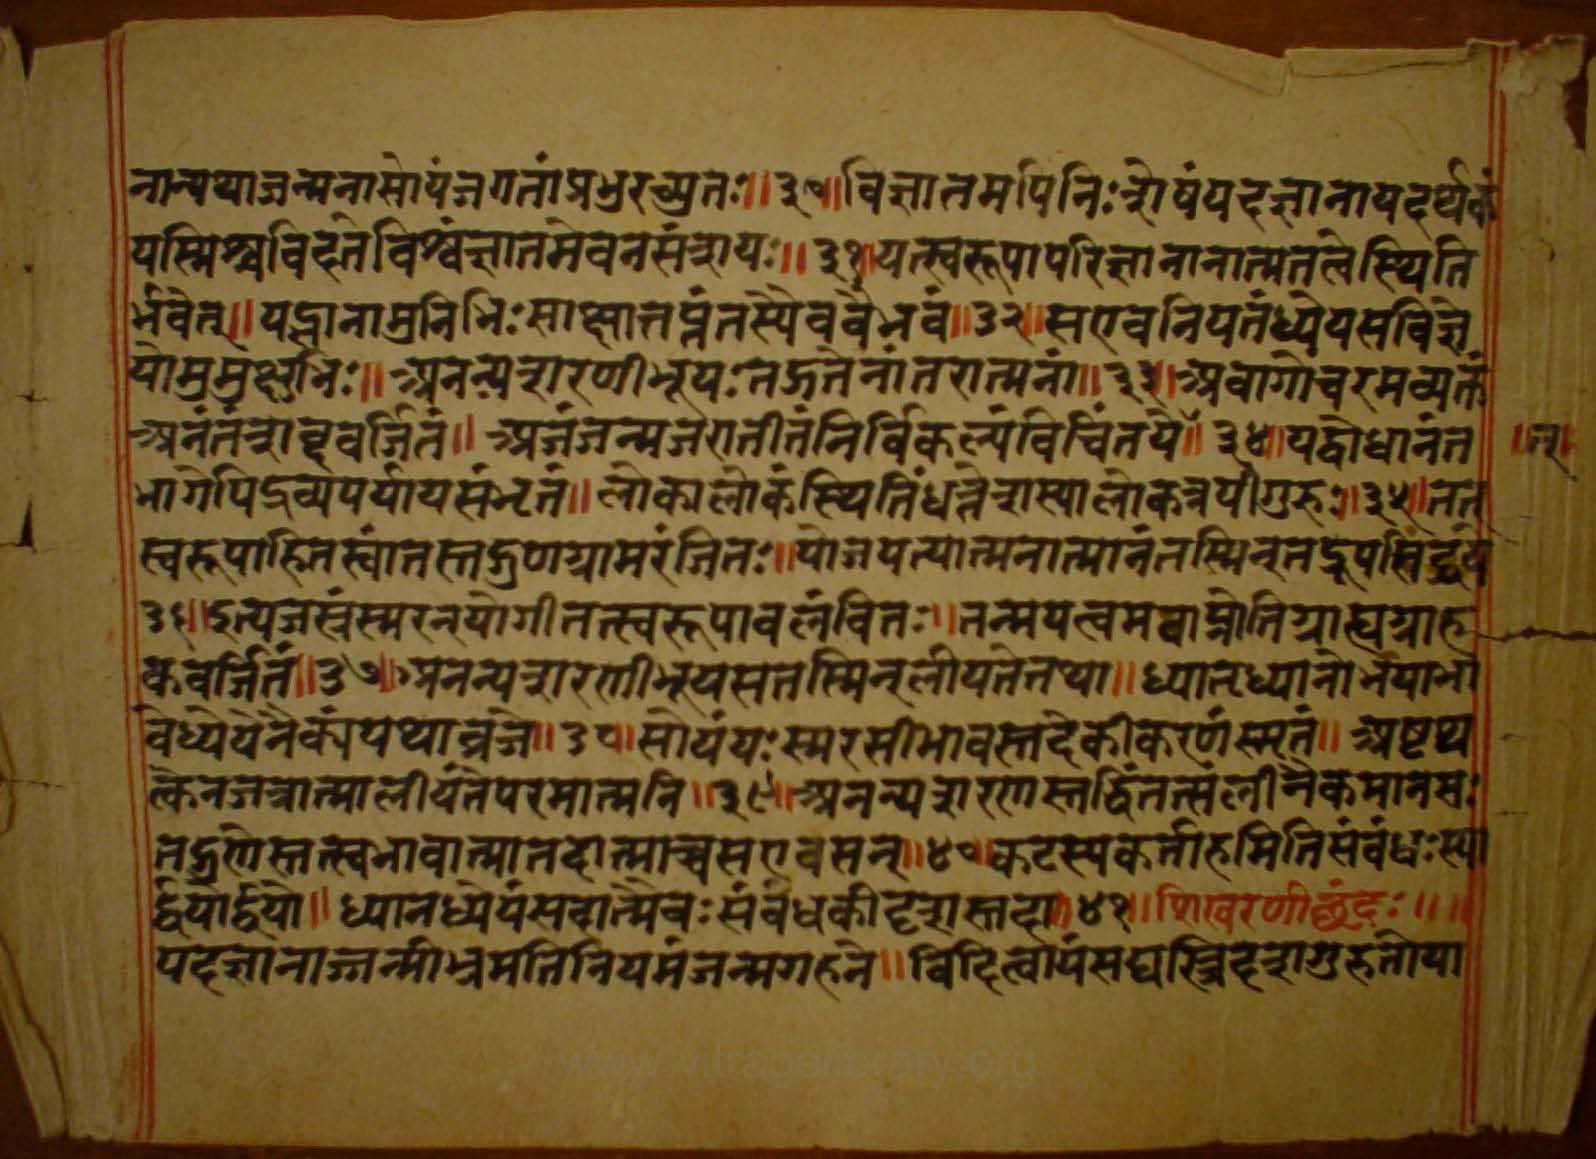 नान्यथाजन्मनासोयंजगतांप्रभुरच्युतः॥३०॥विज्ञातमपिनिःशेषंयदज्ञानायदर्थकं
यस्मिंश्चविदतेविश्वंज्ञातमेवनसंशयः॥३१॥यत्स्वरूपापरिज्ञानानात्मतत्वेस्थिति
र्भवेत्॥यद्ज्ञानामुनिभिःसाक्षात्तप्रंतस्यैववैभवं॥३२॥सएवनियतंध्येयसविज्ञे
योमुमुक्षुभिः॥अनन्यशारणीभूयःतद्गतेनांतरात्मनां॥३३॥अवागोचरमव्यक्तं
अनंतंशब्दवर्जितं॥अजंजन्मजरातीतंनिर्विकल्पंविचिंतये॥३४॥यद्बोधानंत
भागेपिद्रव्यपर्यायसंभृतं॥लोकालोकंस्थितिंधत्तेशस्यालोकत्रयीगुरुः॥३५॥तत्
स्वरूपाहितस्वांतस्तद्गुणग्रामरंजितः॥योजयत्यात्मनात्मानंतस्मिन्तद्रूपसिद्धये
३६॥इत्यजस्त्रंस्मरन्योगीतत्स्वरूपावलंवितः॥तन्मयत्वमवाप्नोतिग्राह्यग्राह
कवर्जितं॥३७॥अनन्यशारणीभूयसतस्मिन्लीयतेतथा॥ध्यातृध्यानोभयाभा
वेध्येयेनैक्यंयथाव्रजे॥३८॥सोयंयःस्मरसीभावस्तदेकीकरणंस्मृतं॥अष्टथ
त्केनजत्रात्मालीयंतेपरमात्मनि॥३९॥अनन्यशारणस्तद्धिंतत्संलीनैकमानसः
तद्गुणैस्तत्स्वभावात्मातदात्माच्चसएवसन्॥४०॥कटस्यकर्त्ताहमितिसंवंधःस्या
र्द्वयोर्द्वयो॥ध्यानध्येयंसदात्मैवःसंवंधकीदृशस्तदा॥४१॥शिखरणीछंदः॥॥
यदज्ञानाज्जन्मीभ्रमतिनियमंजन्मगहने॥विदित्वायंसद्यस्त्रिदशगुरुतोया